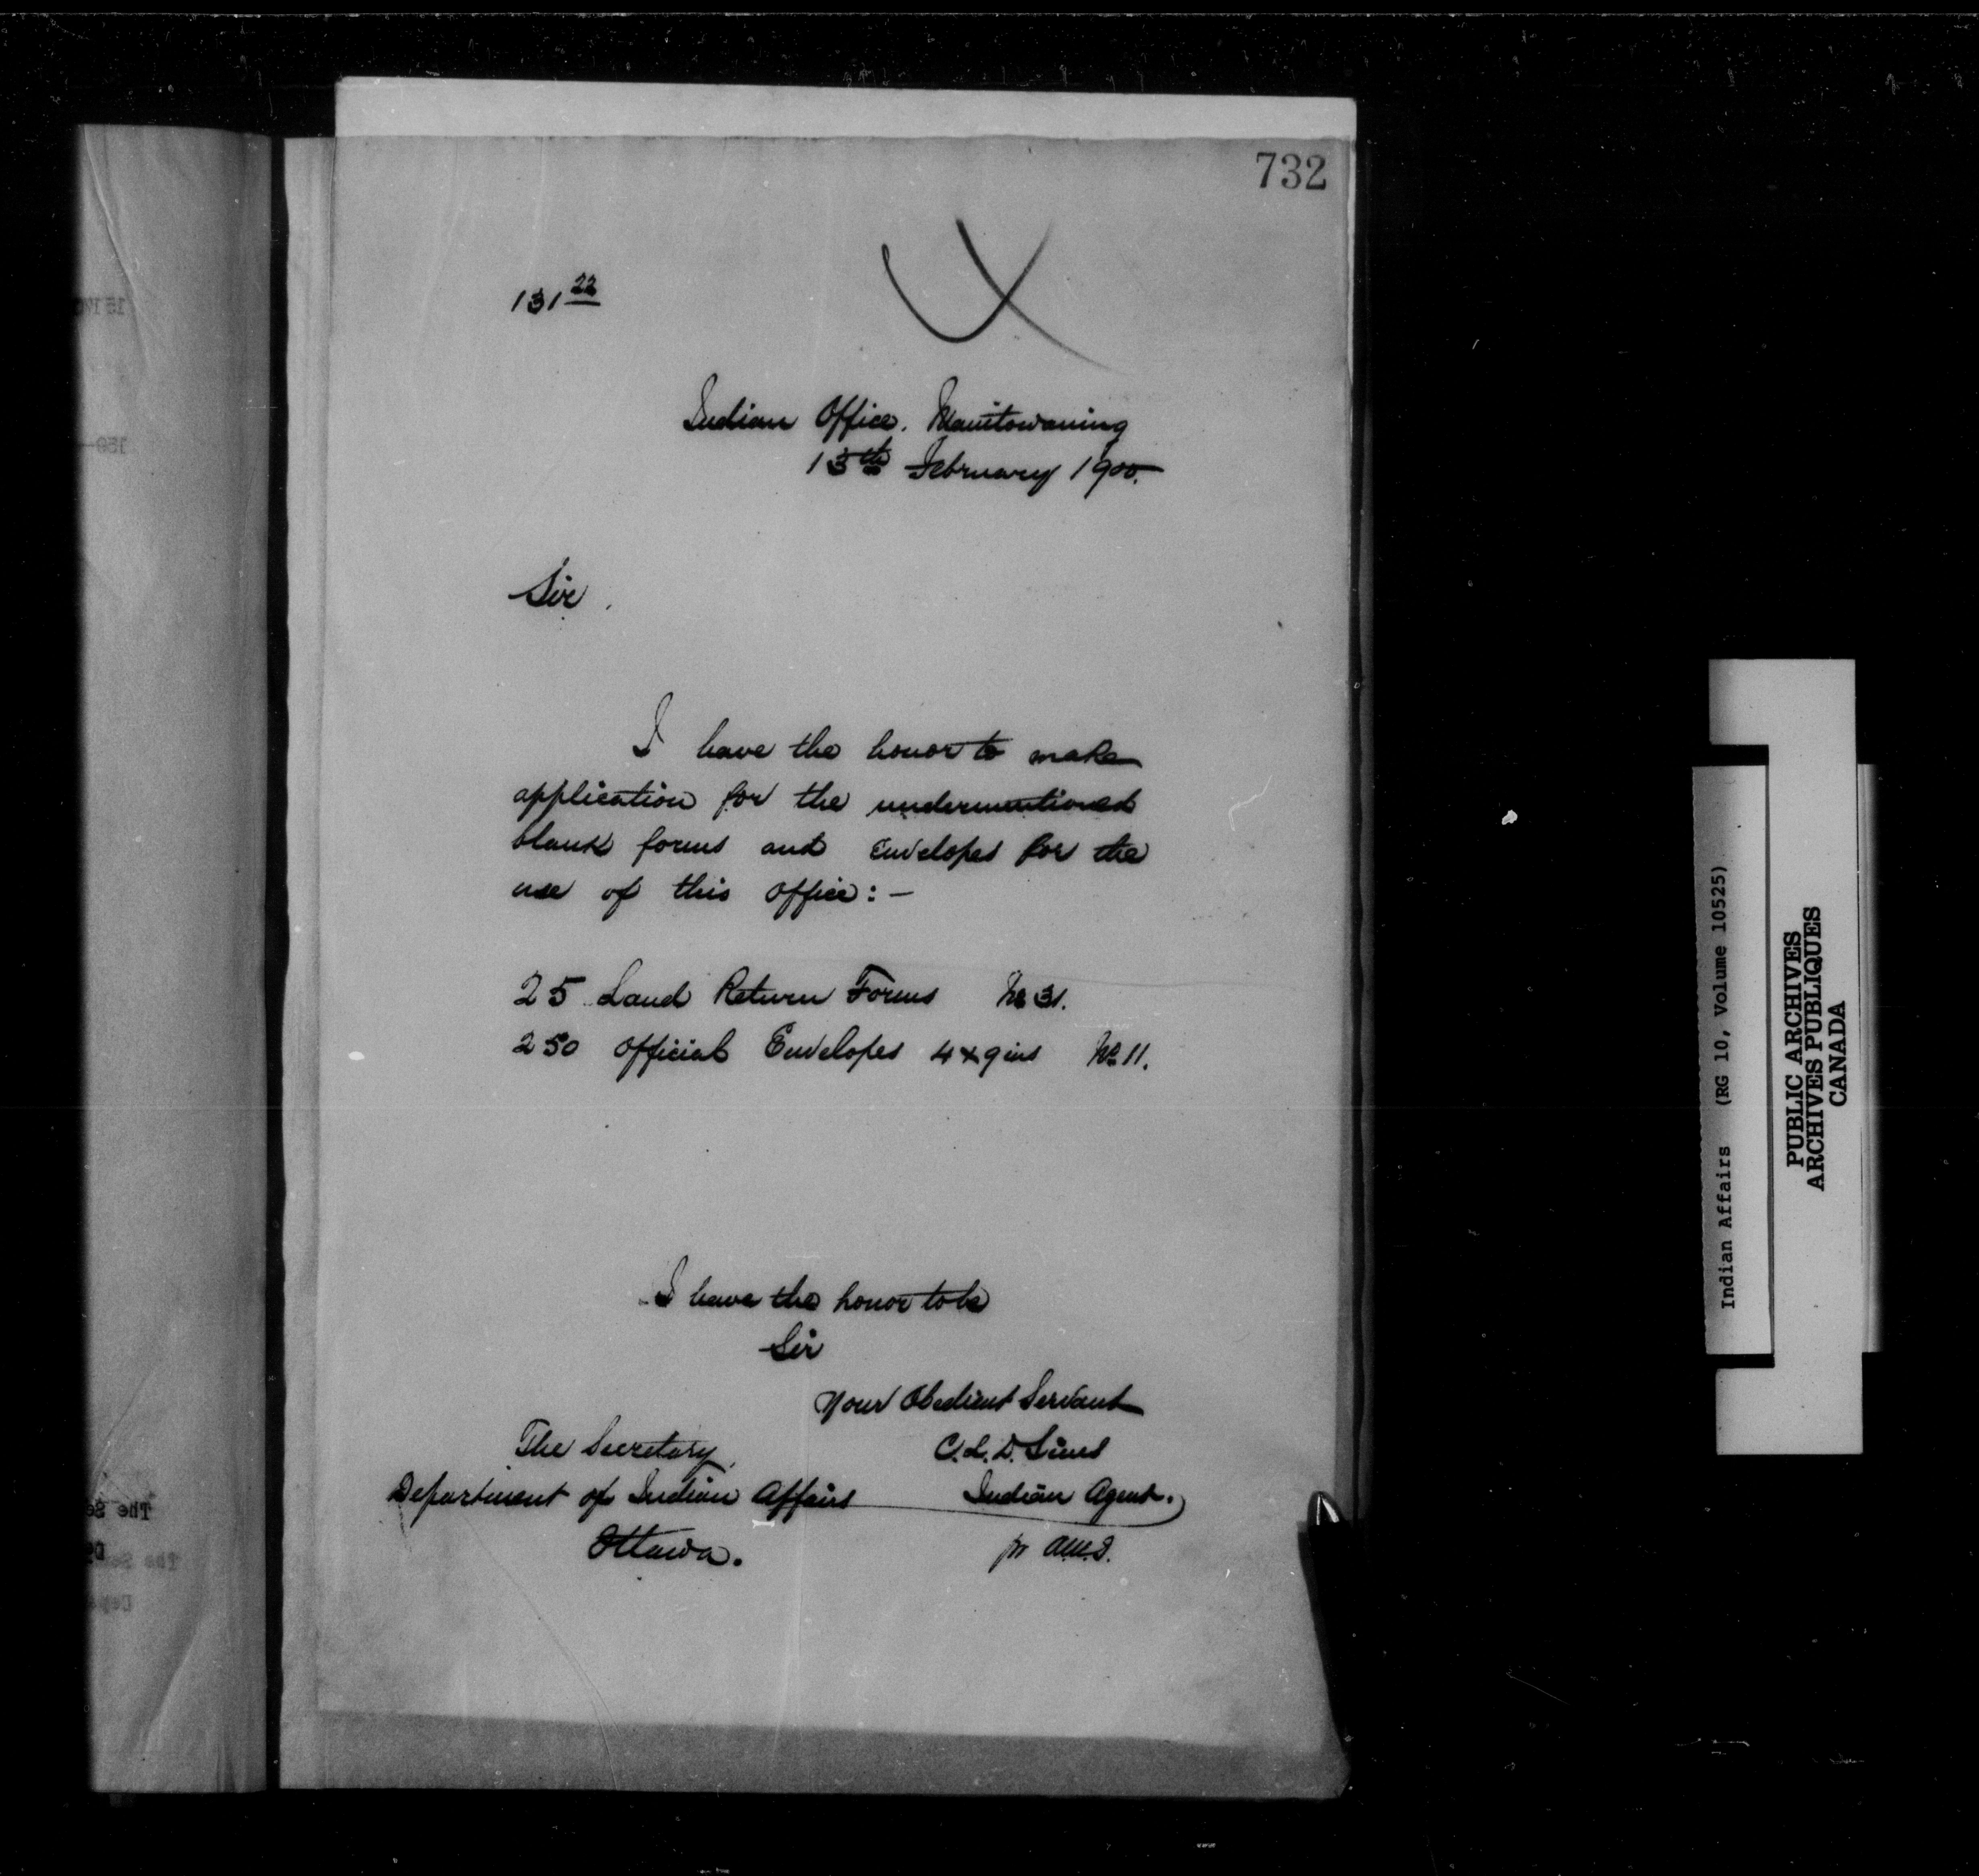 732
131 22
Indian Office. Manitowaning
13th February 1900.
Sir.
I have the honor to make
application for the undermentioned
blank forms and Envelopes for the
use of this office:-
25 Land Return Forms No 31.
250 Official Envelopes 4x9 ins No 11.
I have the honor to be
Sir
Your Obedient Servant
The Secretary,
C.L.D. Sims
Department of Indian Affairs
Indian Agent.
Ottawa.
pr
Indian Affairs (RG 10, Volume 10525)
PUBLIC ARCHIVES
ARCHIVES PUBLIQUES
CANADA